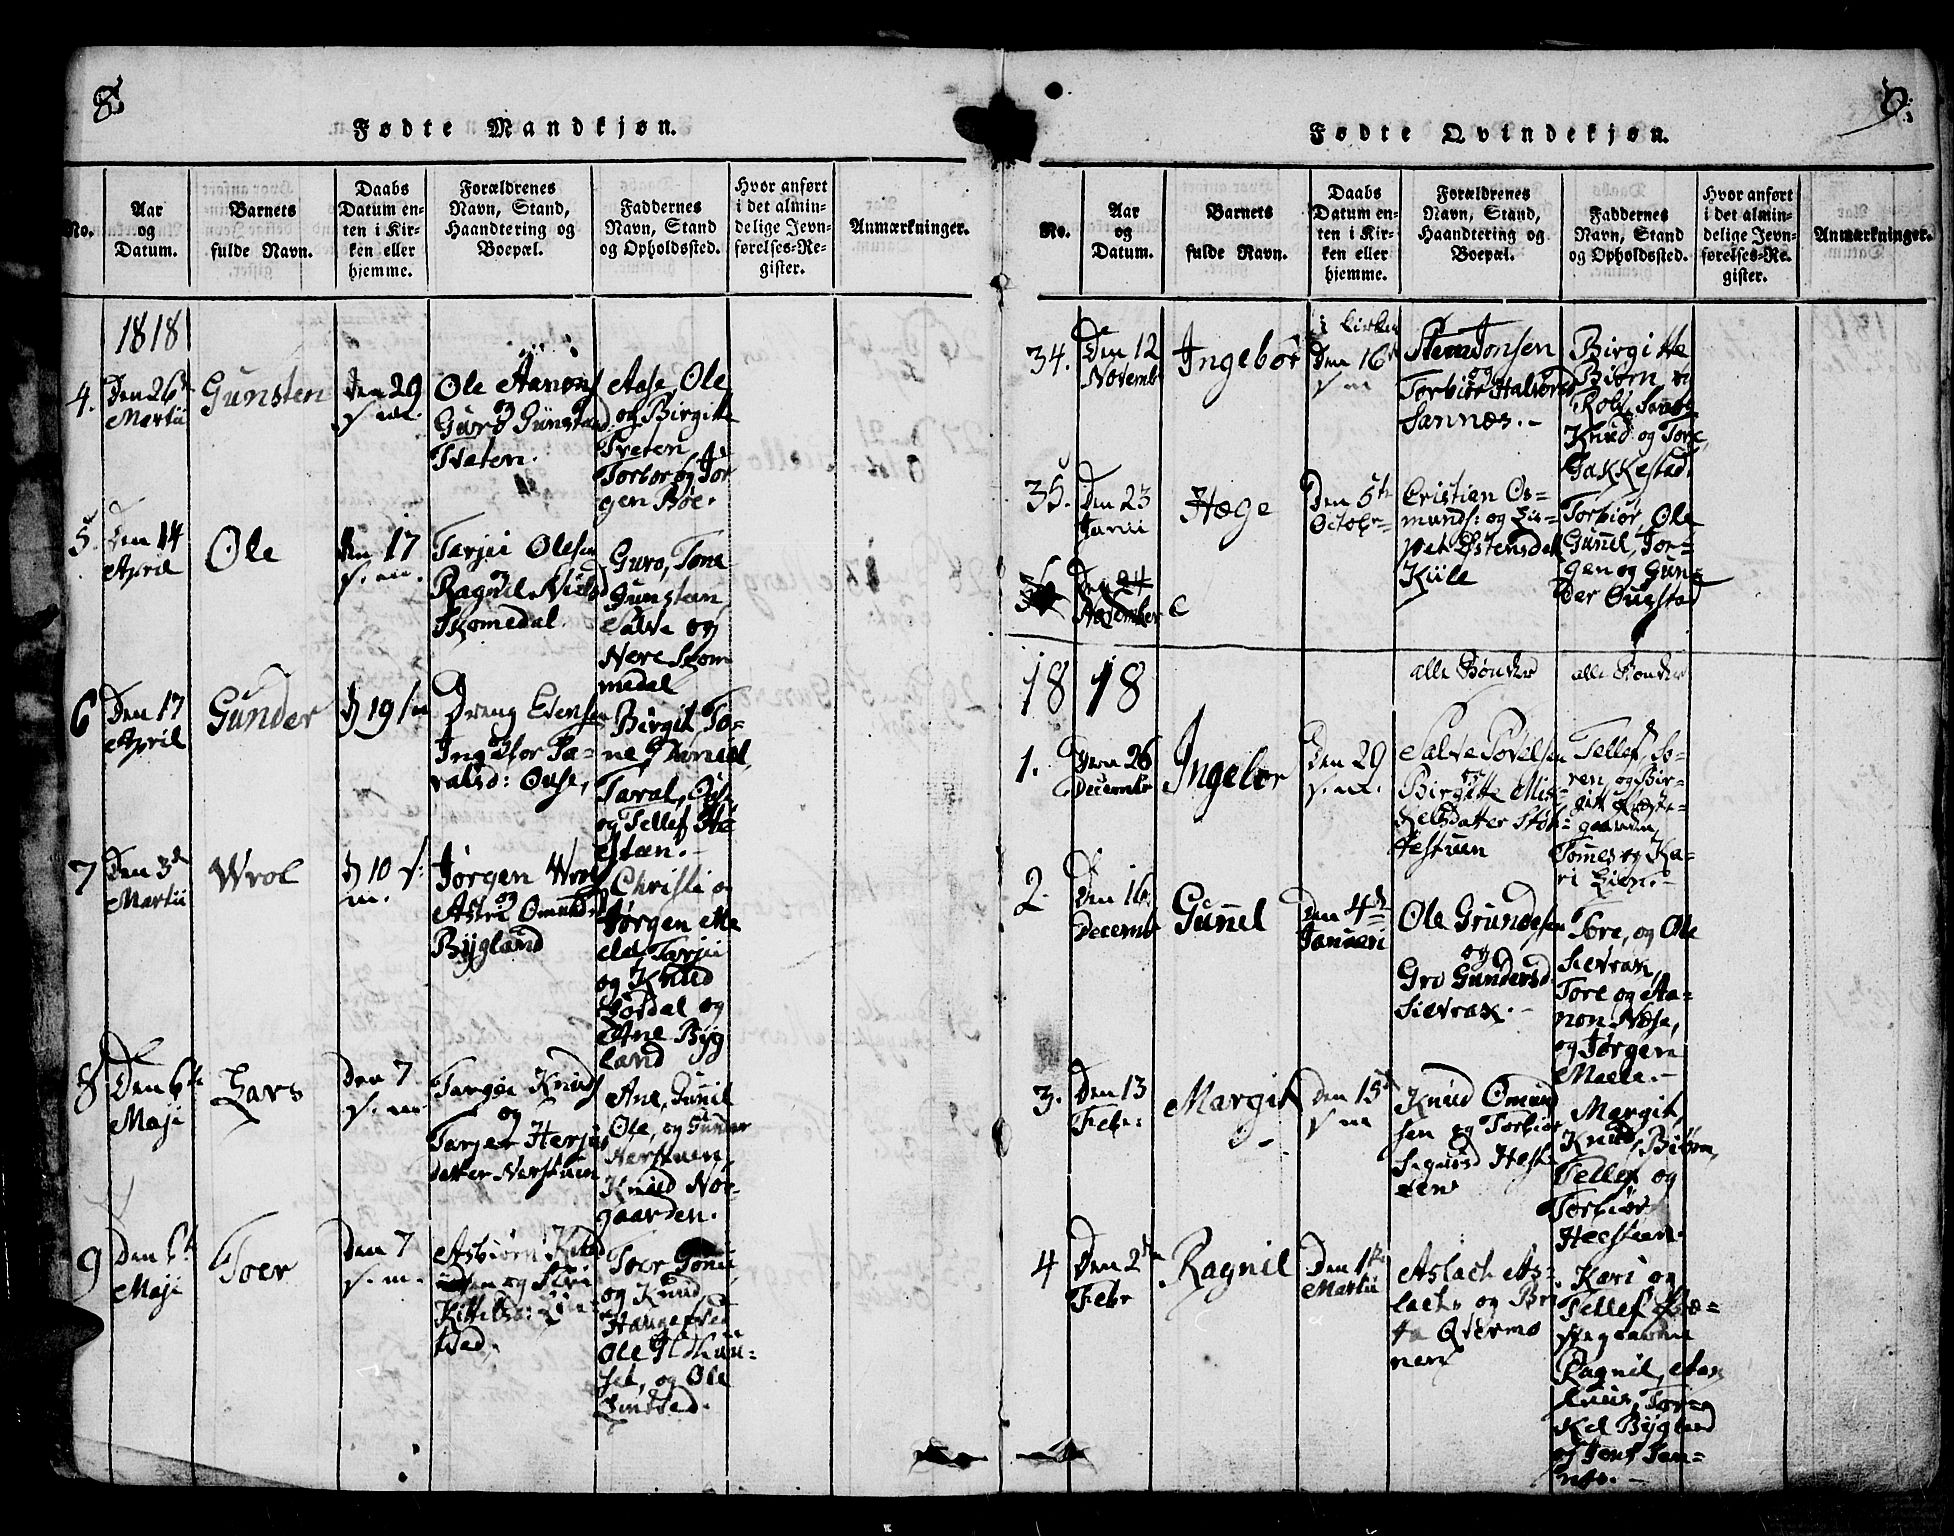 8
Fødte Mandkjøn.
No.
Aar
og
Datum.
Barnets
fulde Navn.
Daabs
Datum en-
ten i Kir-
ken eller
hjemme.
Forældrenes
Navn, Stand,
Haandtering og
Boepæl.
Faddernes
Navn, Stand
og Opholdssted.
Hvor anført
i det almin-
delige Jevn-
førelses-Re-
gister.
Anmærkninger.
1818
4.
Den 26
Martii
Gunsten
Den 29
s. m.
Ole Aanons
og
Guro Gunstad
Tveten.
Aase, Ole
og Birgitte
Tveten
Torbor og Jør
gen Böe.
5.
Den 14
April
Ole
Den 17
s. m.
Tarjei Olesen
og
Ragnil Niels
Skomedal.
Guro, Tone
Gunsten
Salve og
Nere Skom
medal
6
Den 17
April
Gunder
D 19 s m
Dreng Evensen
og
Ingebor Ta-
valsd: Ouse,
Birgit To-
ne
Taral,
og Tellef
7
Den 3
Martii
Wrol
D 10 s:
m.
Jørgen Wrol
og
Astri Omunds
Bygland
Christi og
Jørgen Me
eld, Tarjei
og Knud
og
Ane Byg
land
8
Den 6te
Maji
Lars
Den 7
s. m.
Targei Knuds
og
Tarjer Herjus
datter Nerstuen
Ane, Gunil
Ole, og Gunder
Nerstuen,
Knud Nor-
gaarden.
9
Den 6te
Maji
Toer
Den 7
s. m.
Asbiørn Knud
sen og Siri
Kittelsd: Lin-
stad.
Toer
og Knud
Ole
set, og Ole
Linstad.
9:
Fødte Qvindekjøn.
No.
Aar
og
Datum.
Barnets
fulde Navn.
Daabs
Datum en-
ten i Kir-
ken eller
hjemme.
Forældrenes
Navn, Stand,
Haandtering og
Boepæl.
Faddernes
Navn, Stand
og Opholdssted.
Hvor anført
i det almin-
delige Jevn-
førelses-Re-
gister.
Anmærkninger.
34.
Den 12
Novemb
Ingebor
i Kirken
Den 16
s m
Jonsen
og
Torbiør Halvord
Sannes.-
Birgitte
Biørn og
Knud og Tore,
Gakkestad.
35.
Den 23
Junii
Hæge
Den 5te
Octobr
Cristian Os-
munds: og Lis-
pet Østensdatt
Kiile
Torbiør, Ole
Gunnel, Jor-
gen og Gun-
der Ougstad
36
Den 24
November
1818
alle Bønder
alle Bønder
1.
Den 26
December
Ingebor
Den 29
s. m.
Salve Povelsen
og
Birgitte Mik-
kelsdatter
Tellef, So-
ren, og Bir-
git
gaarden,
Tomes og Ka-
ri Lien.-
2.
Den 16
Decemb
Gunnel
Den 4de
Januari
Ole Grundesen
og
Gro Gundersd
Sievrak.-
Tore, og Ole
Sievrak,
Tore og Aa-
non Næse,
og Jørgen
Meele.-
3.
Den 13
Febr:
Margit
Den 15
s m
Knud Omund
sen og Torbiør
Sigurdsd
Margit,
Knud, Biørn,
Tellef og
Torbiør
4
Den 2den
Febr
Ragnil
Den 1te
Martii
Aslach As-
lachs og Bri
ta
Kari og
Tellef
Ragnil,
Tor-
kel Bygland
og Jens San-
nes.-